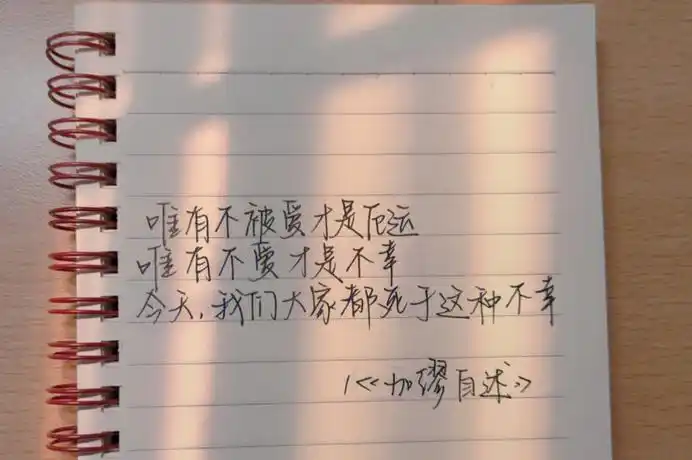 唯有不被爱才是厄运
唯有不爱才是不幸
今天,我们大家都死于这种不幸
/《加缪自述》